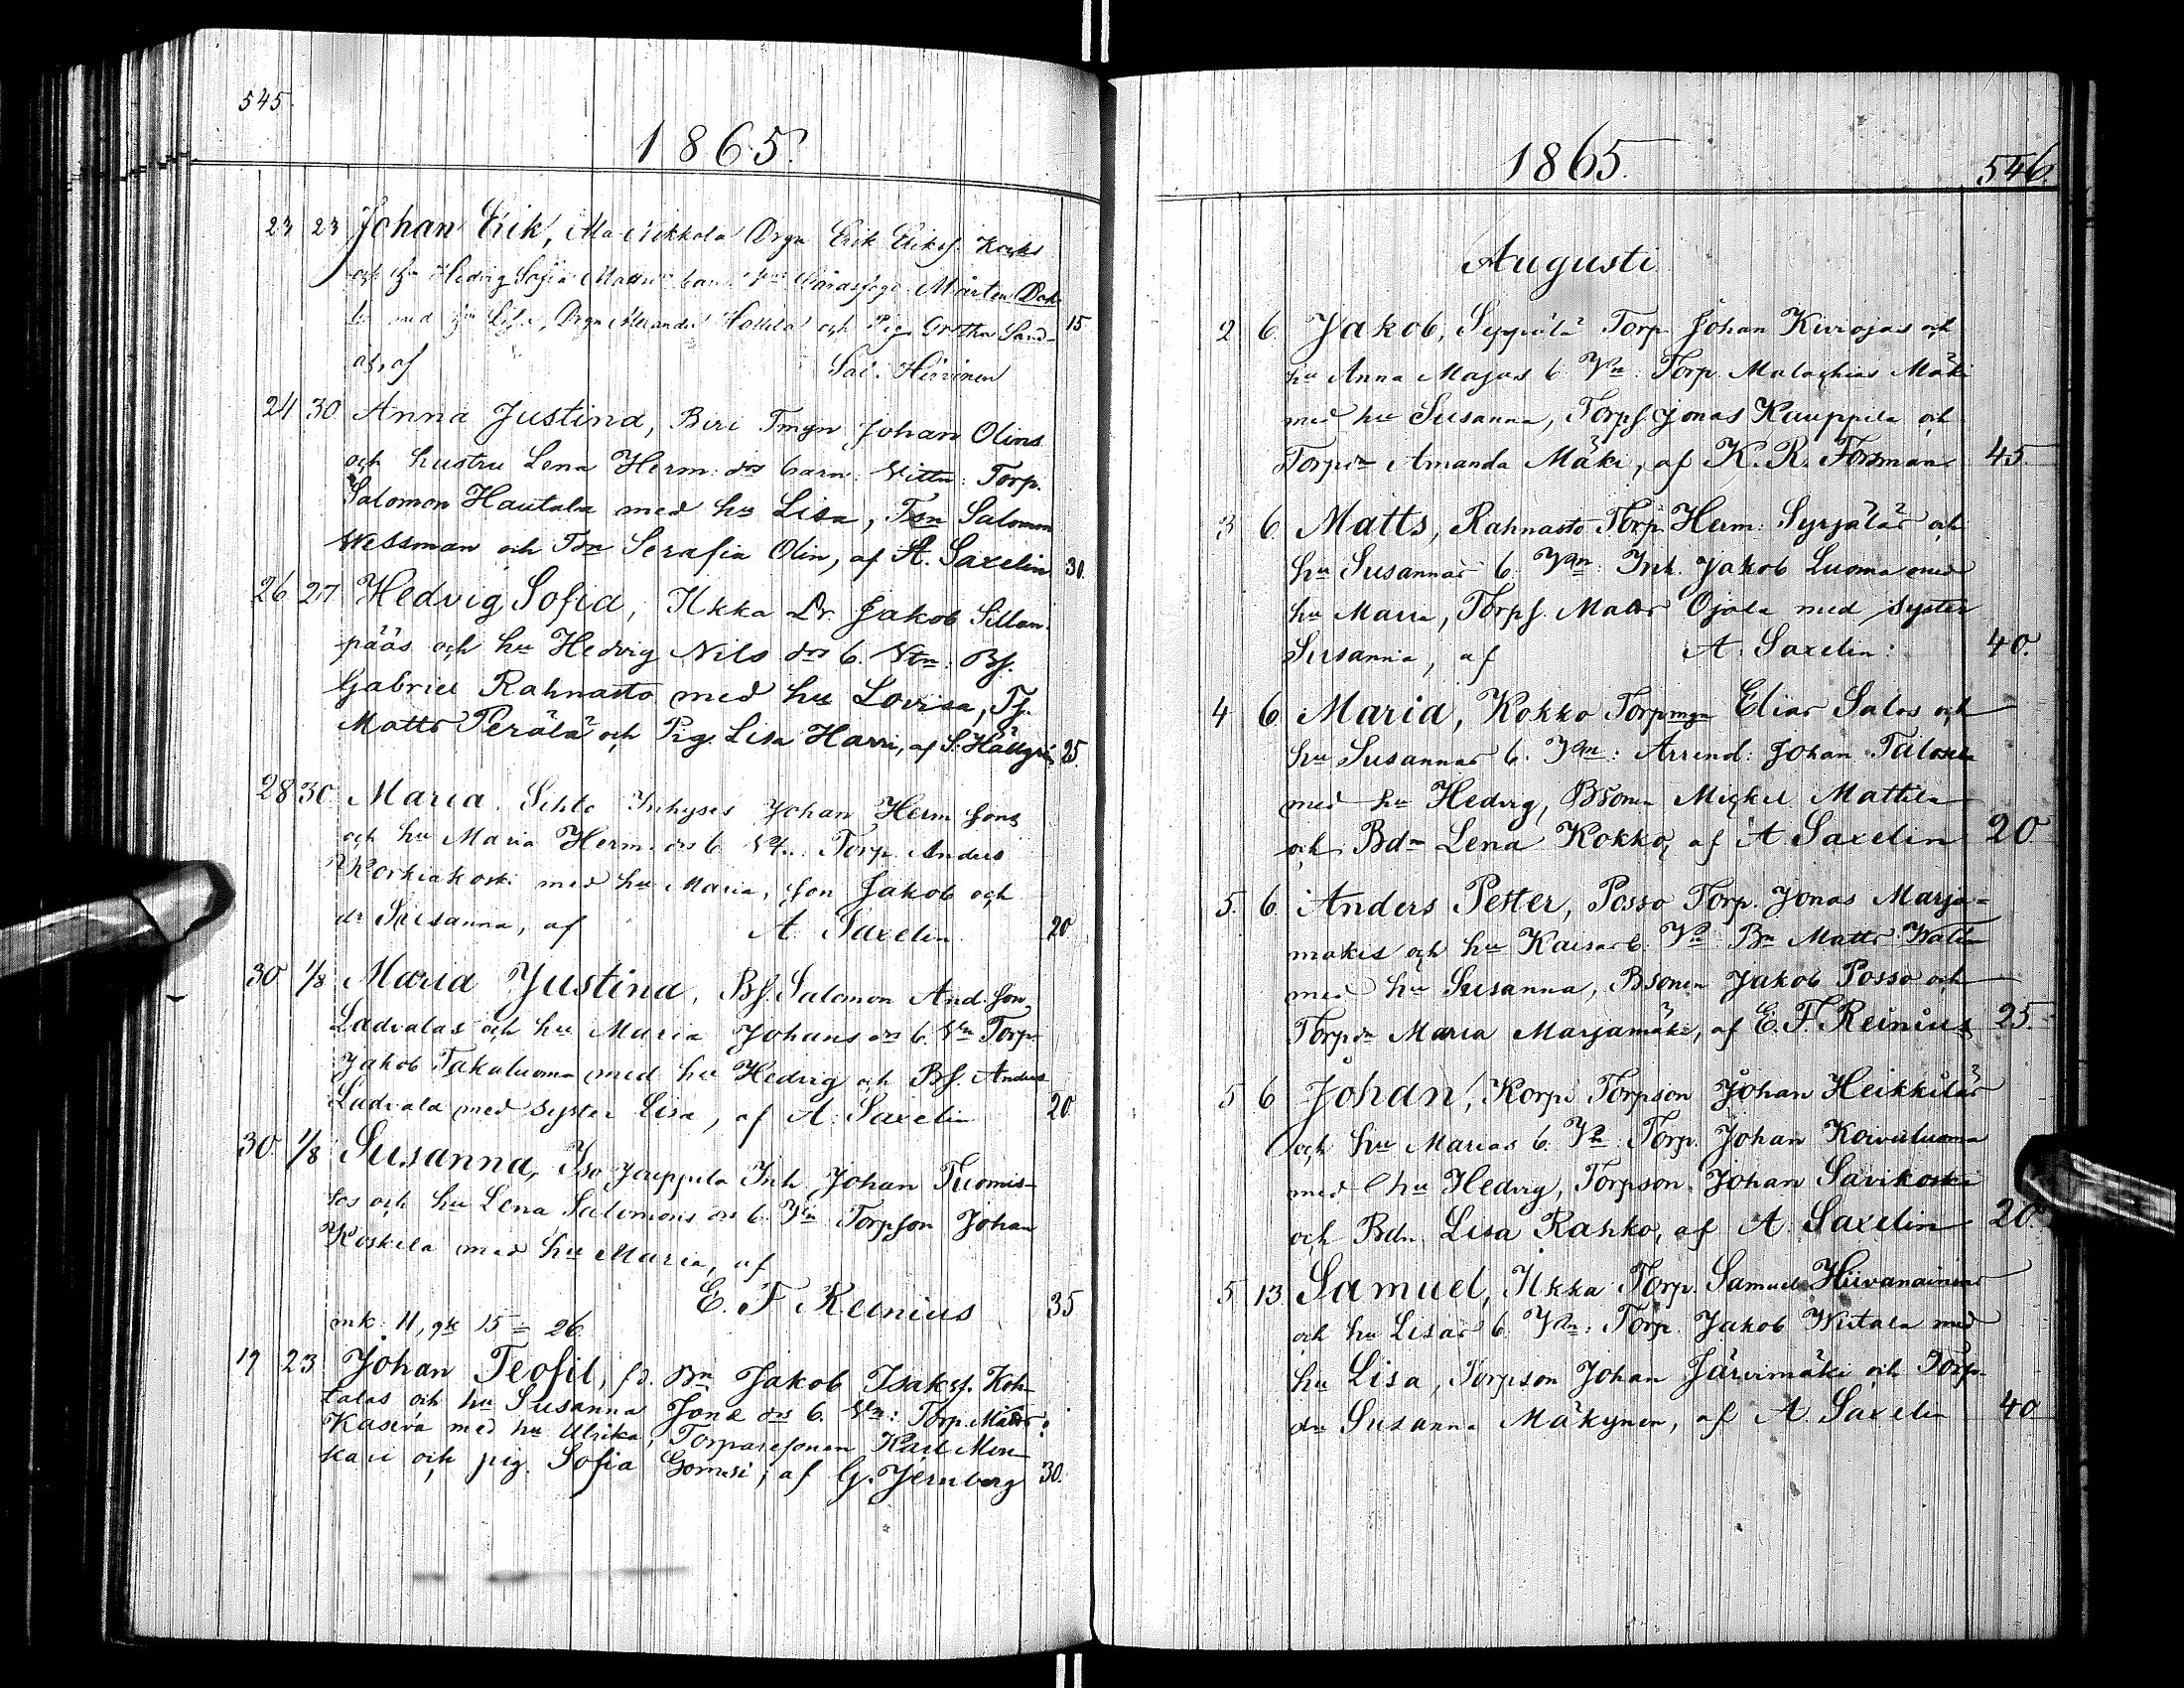 545.
1865.
23 23 Johan Erik, Ala Nikkola Drgn Erik Eriks.
och hu Hedvig Sofia Matts barn Vtn Mårten
med hu Drgn och Pig. Gretha Sand- 15
ås, af Sal. Hirvinen
24 30 Anna Justina, Biri Tmgn Johan Olins
och hustru Lena Herm: drs barn. Vittn: Torp.
Salomon Hautala med hu Lisa, Tsn Salomon
Wessman och Tdn Serafia Olin, af A. Saxelin 30.
26 27 Hedvig Sofia, Ilkka Dr. Jakob Sillan-
pääs och hu Hedvig Nils drs b. Vtn: Bf.
Gabriel Rahnasto med hu Lovisa, Tf.
Matts Perälä och Pig. Lisa Harri, af S. Hällgrén 25.
28 30 Maria. Inhyses Johan Herm: sons
och hu Maria Herm. drs b. Vtn: Torp. Anders
Korkiakoski med hu Maria, son Jakob och
dr Susanna, af A. Saxelin 20
30 1/8 Maria Justina, Bf. Salomon And. son
Ladvalas och hu Maria Johans drs b. Vtn Torp.
Jakob Takaluoma med hu Hedvig och Bf. Anders
Ladvala med syster Lisa, af A. Saxelin 20
30 1/8 Susanna, Iso Jauppila Inh. Johan Tuomis-
tos och hu Lena Salomons drs b. Vtn Torpson Johan
Koskela med hu Maria, af
E. F. Reinius 35
mk. 11, 15 = 26
19 23 Johan Teofil, Bn Jakob Isaksf. Koh-
talas och hu Susanna Jona drs b. Vtn: Torp. Matts
Kaseva med hu Ulrika, Torparesonen Karl Meri-
kari och pig. Sofia af G. Jernberg 30.
1865. 546.
Augusti
2 6. Jakob, Seppälä Torp. Johan Kiviojas och
hu Anna Majas b. Vtn: Torp. Malachias Mäki
med hu Susanna, Torps. Jonas Kauppila och
Torpdn Amanda Mäki, af K. R. Forsman 45.
3 6. Matts, Rahnasto Torp. Herm: Syrjäläs och
hu Susannas b. Vtn: Inh. Jakob Luoma med
hu Maria, Torps. Matts Ojala med syster
Susanna, af A. Saxelin: 40.
4 6. Maria, Kokko Torpmgn Elias Salos och
hu Susannas b. Vtn: Arrend: Johan
med hu Hedvig, Bsonen Mickel Mattila
och Bdn Lena Kokko, af A Saxelin 20.
5. 6. Anders Petter, Posso Torp. Jonas Marja-
mäkis och hu Kaisas b. Vtn: Bn Matts
med hu Susanna, Bsonen Jakob Posso och
Torpdn Maria Marjamäki, af E. F. Reinius 25.
5 6 Johan, Korpi Torpson Johan Heikkiläs
och hu Marias b. Vtn: Torp. Johan Koivuluoma
med hu Hedvig, Torpson Johan Savikoski
och Bdn. Lisa Rahko, af A. Saxelin 20.
5 13. Samuel, Ilkka Torp. Samuel Hiivanainens
och hu Lisas b. Vtn: Torp. Jakob Wiitala med
hu Lisa, Torpson Johan Järvimäki och Torp-
dn Susanna Mäkynen, af A. Saxelin 40